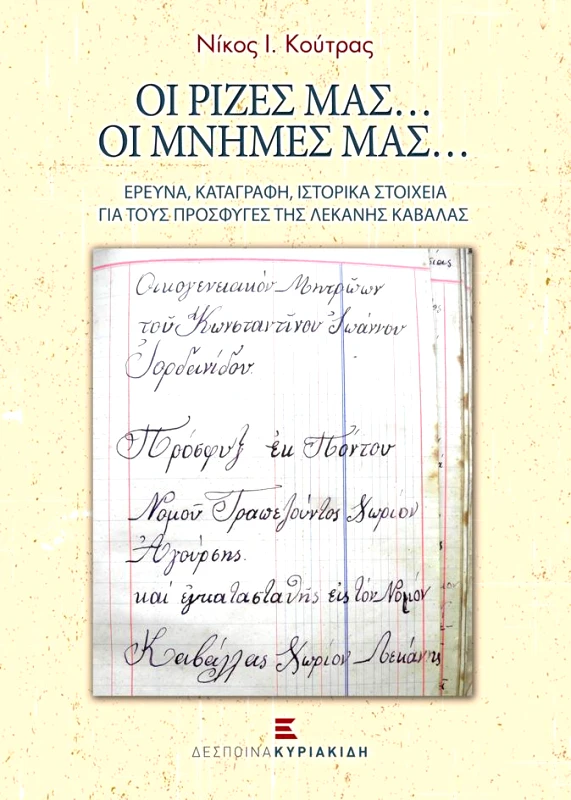 Νίκος Ι. Κούτρας
ΟΙ ΡΙΖΕΣ ΜΑΣ...
ΟΙ ΜΝΗΜΕΣ ΜΑΣ...
ΕΡΕΥΝΑ, ΚΑΤΑΓΡΑΦΗ, ΙΣΤΟΡΙΚΑ ΣΤΟΙΧΕΙΑ
ΓΙΑ ΤΟΥΣ ΠΡΟΣΦΥΓΕΣ ΤΗΣ ΛΕΚΑΝΗΣ ΚΑΒΑΛΑΣ
Οικογενειακόν Μητρῶων
τοῦ Κωνσταντῖνου Ἰωάννου
Ἰορδανίδου
Πρόσφυξ ἐκ Πόντου
Νομοῦ Τραπεζούντος Χωρίον
Ἀγούρσης.
καί ἐγκατασταθῆς εἰς τόν Νομόν
Καβάλλας Χωρίον Λεκάνης
ΔΕΣΠΟΙΝΑΚΥΡΙΑΚΙΔΗ